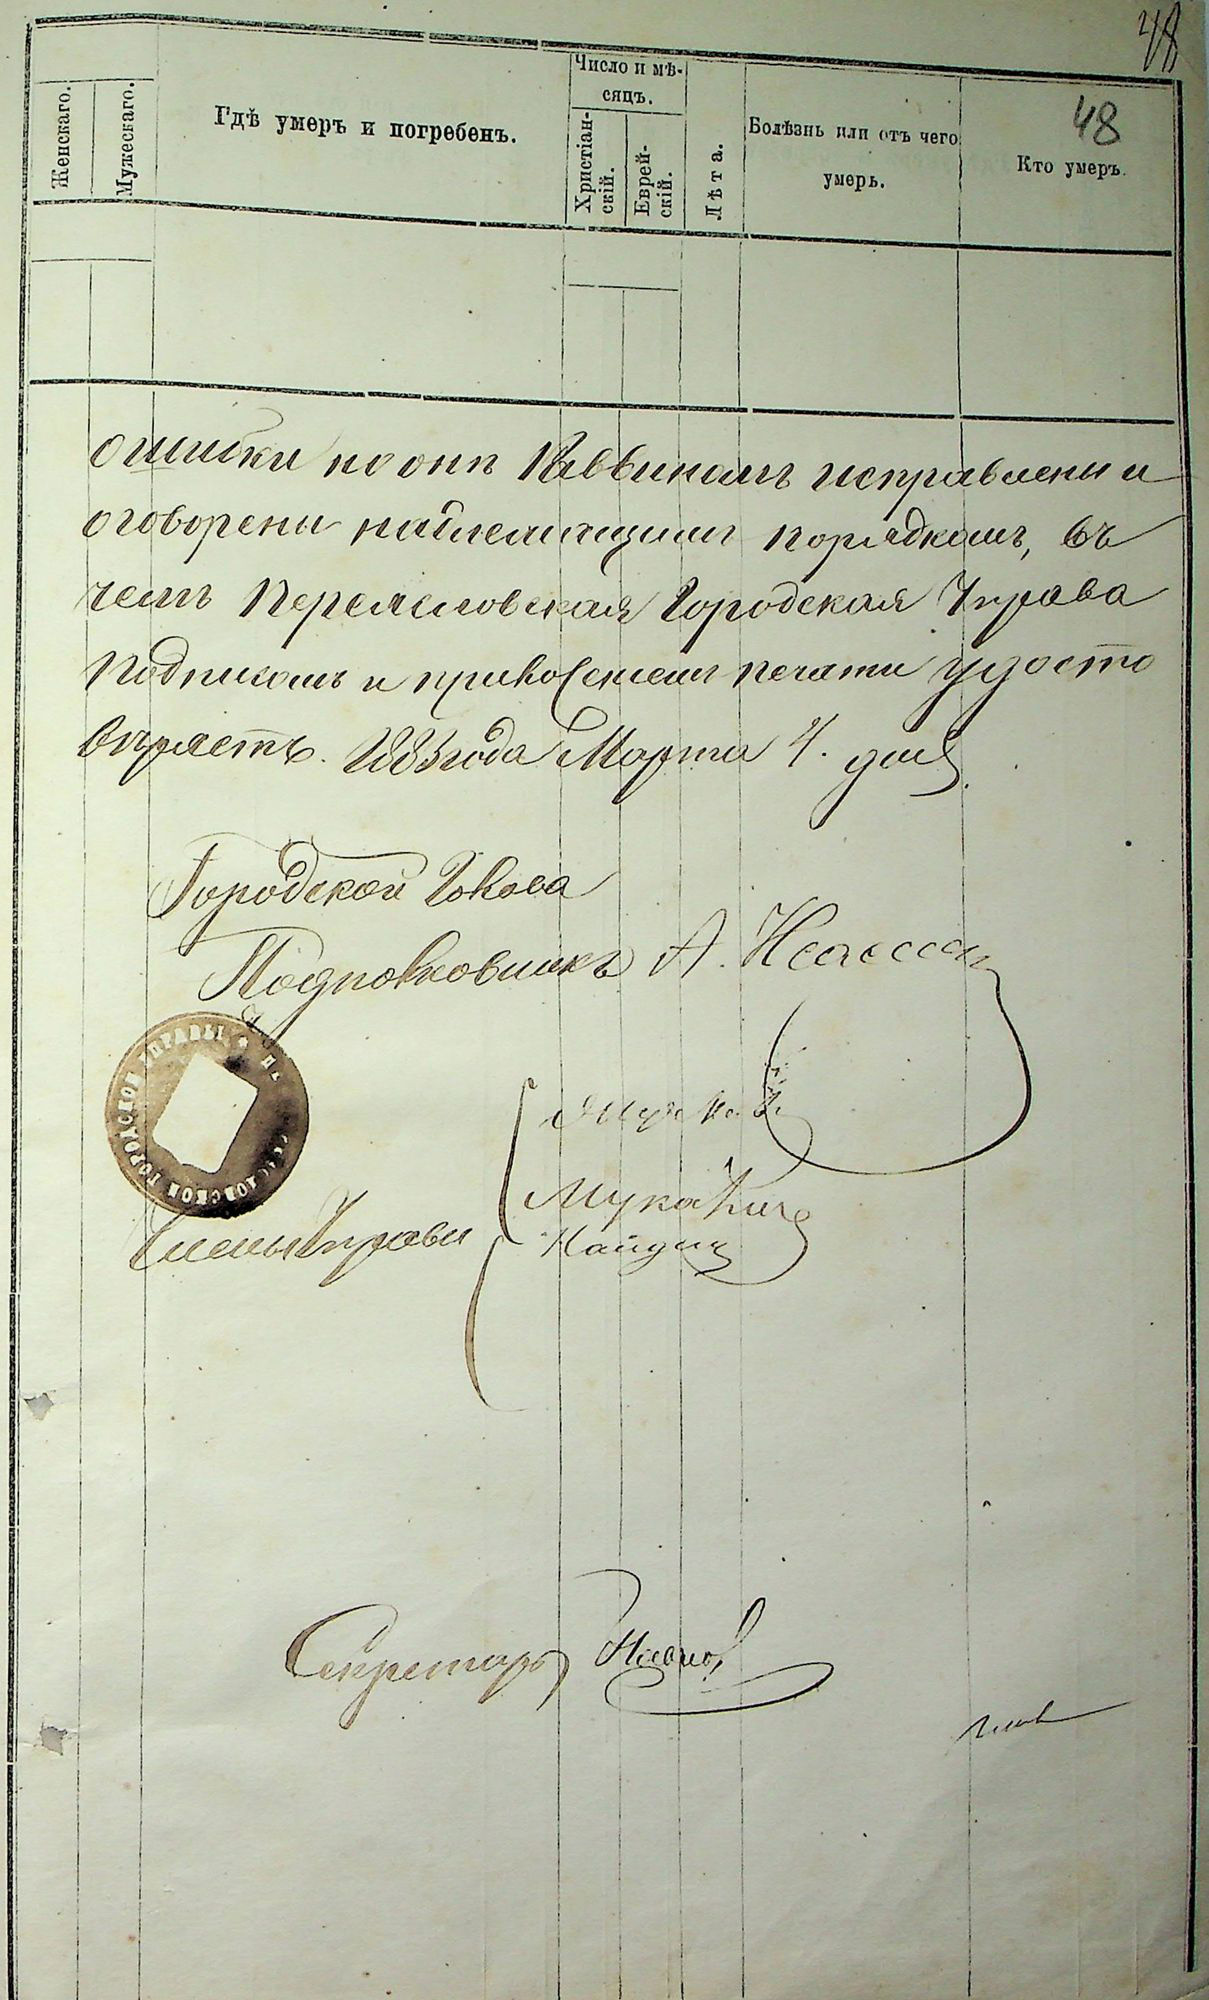 48
48
Женскаго.
Мужескаго.
Гдѣ умеръ и погребенъ.
Число и мѣ-
сяцъ.
Христіан-
скій.
Еврей-
скій.
Лѣта.
Болѣзнь или отъ чего
умеръ.
Кто умеръ.
ошибки по онѣ Раввиномъ исправлены и
оговорены надлежащимъ порядкомъ, въ
чемъ Городская Управа
подписомъ и приложеніемъ печати удосто
вѣряетъ. года Марта 4. дня
Городской Голова
Подполковникъ А.
ГОРОДСКОЙ УПРАВЫ
Члены Управы
Найдин
Секретарь